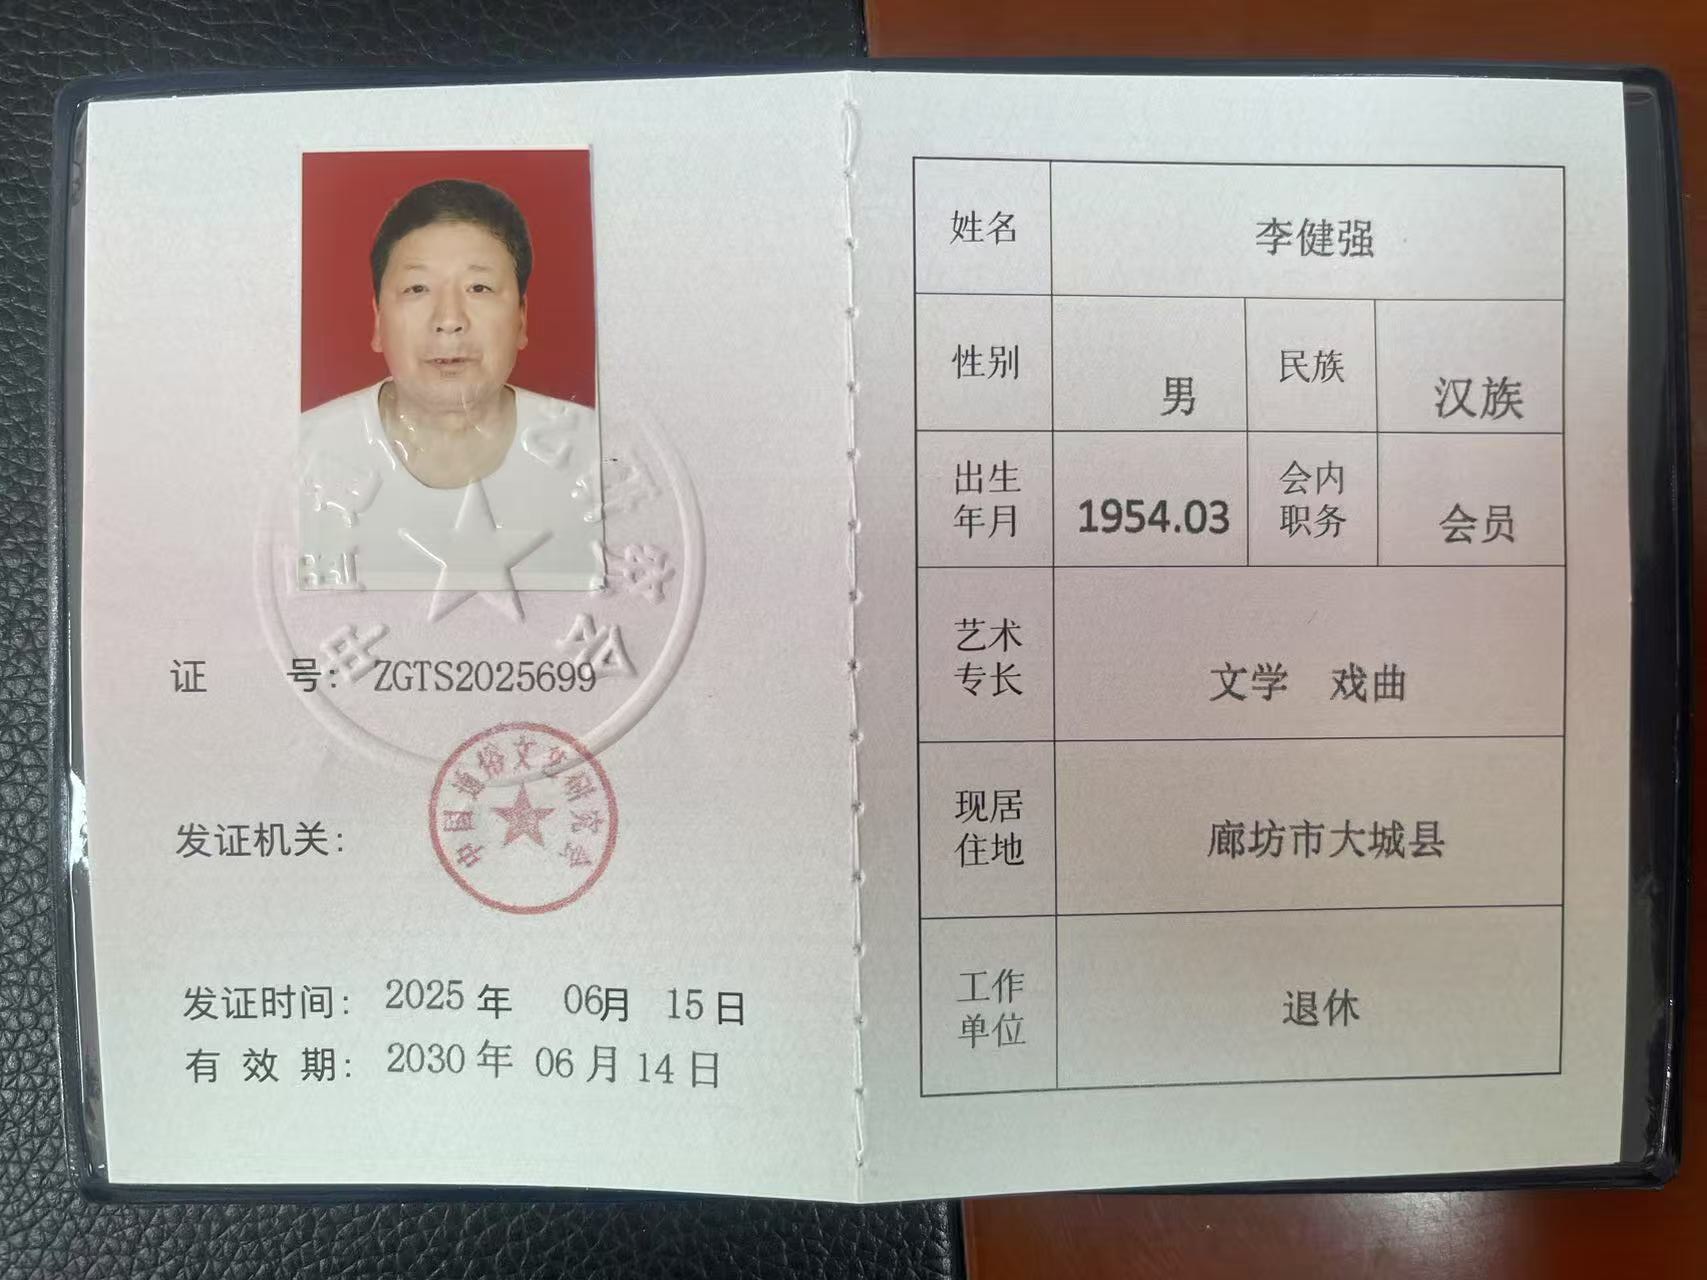 证 号：ZGTS2025699
中国通俗文艺研究会
发证机关：
发证时间：2025年 06月 15日
有效期：2030年 06月 14日
姓名 李健强
性别 男 民族 汉族
出生年月 1954.03 会内职务 会员
艺术专长 文学 戏曲
现居住地 廊坊市大城县
工作单位 退休